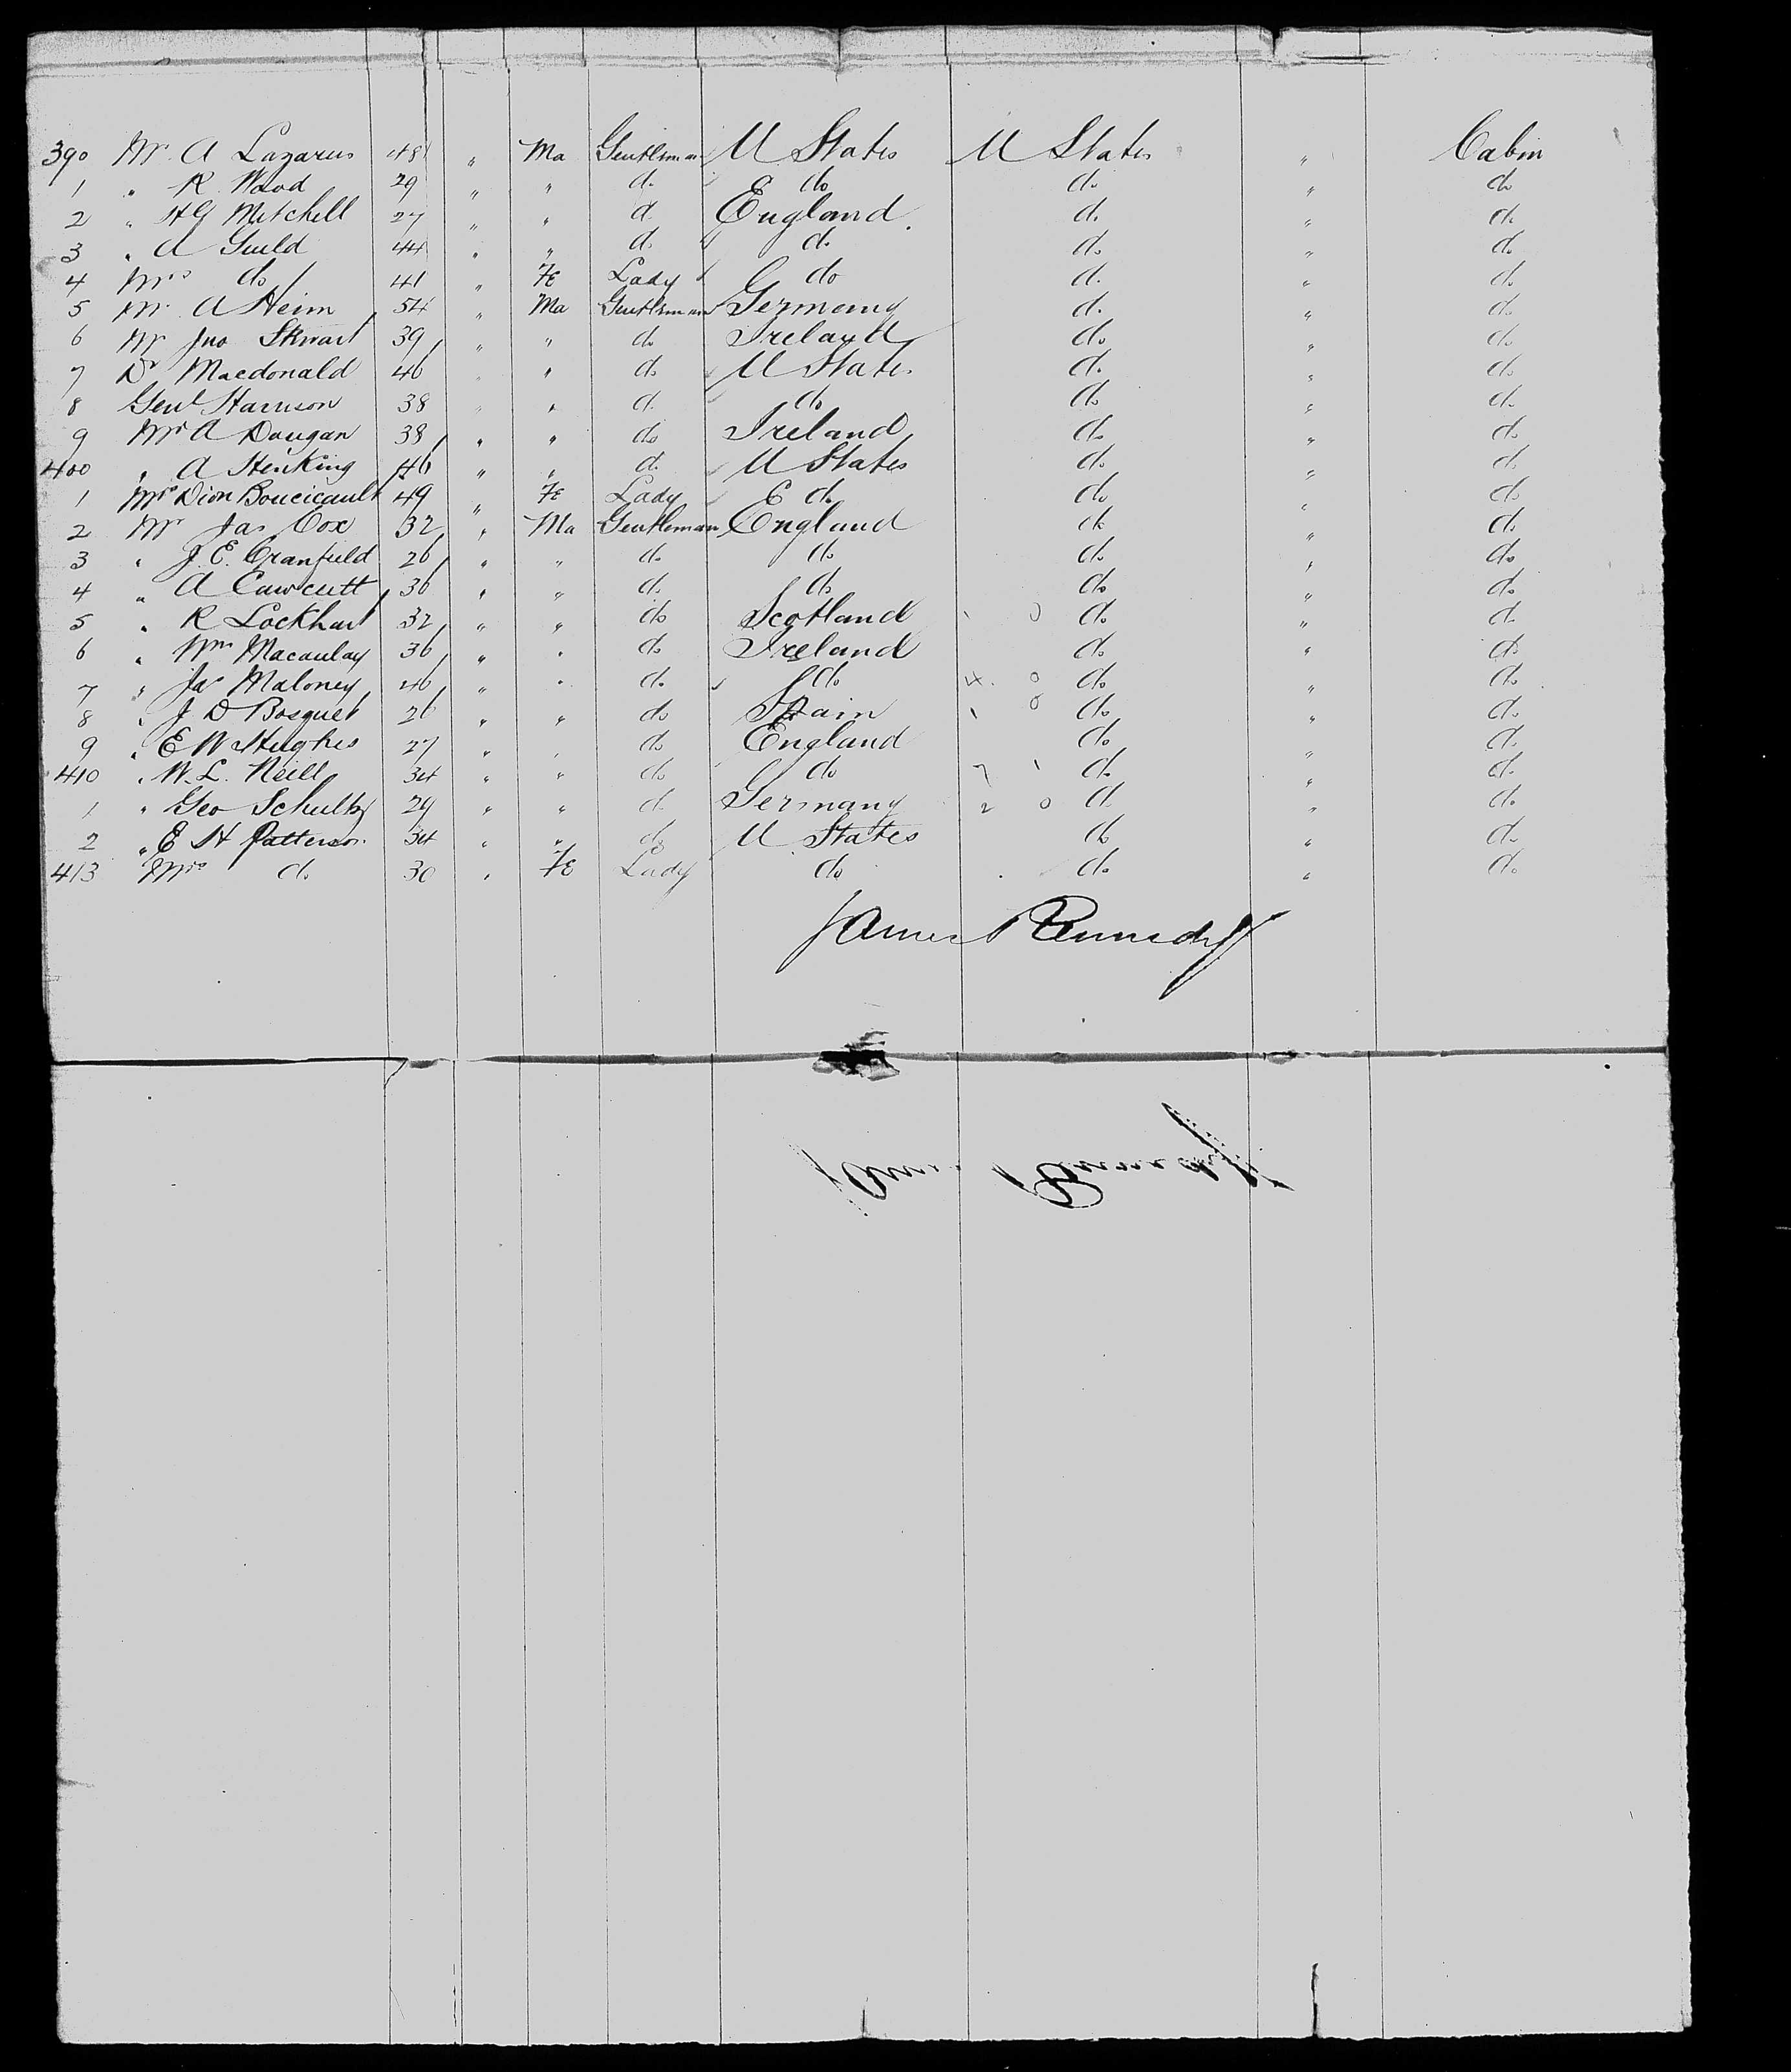 390 Mr. A Lazarus 48 " Ma Gentleman U States U States " Cabin
1 " R. Wood 29 " " do do do " do
2 " H G Mitchell 27 " " do England do " do
3 " A Guild 44 " " do do do " do
4 Mrs do 41 " Fe Lady do do " do
5 Mr. A Heim 54 " Ma Gentleman Germany do " do
6 Mr Jno Stewart 39 " " do Ireland do " do
7 Dr Macdonald 46 " " do U States do " do
8 Genl Harrison 38 " " do do do " do
9 Mr A Dougan 38 " " do Ireland do " do
400 " A Henking 46 " " do U States do " do
1 Mrs Dion Boucicault 49 " Fe Lady do do " do
2 Mr Jas Cox 32 " Ma Gentleman England do " do
3 " J. E. Cranfield 26 " " do do do " do
4 " A Cawcutt 36 " " do do do " do
5 " R Lockhart 32 " " do Scotland do " do
6 " Wm Macaulay 36 " " do Ireland do " do
7 " Jas Maloney 46 " " do do 4 0 do " do
8 " J D Bosquet 26 " " do Spain 1 0 do " do
9 " E W Hughes 27 " " do England do " do
410 " W. L. Neill 34 " " do do 7 1 do " do
1 " Geo Schultz 29 " " do Germany 2 0 do " do
2 " E H Patterson 34 " " do U States do " do
413 Mrs do 30 " Fe Lady do do " do
James Kennedy